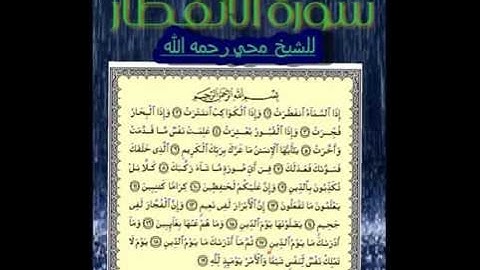 سورة الانفطار
للشيخ محي رحمه الله
بِسْمِ ٱللَّهِ ٱلرَّحْمَٰنِ ٱلرَّحِيمِ
إِذَا ٱلسَّمَآءُ ٱنفَطَرَتْ ١ وَإِذَا ٱلْكَوَاكِبُ ٱنتَثَرَتْ ٢ وَإِذَا ٱلْبِحَارُ
فُجِّرَتْ ٣ وَإِذَا ٱلْقُبُورُ بُعْثِرَتْ ٤ عَلِمَتْ نَفْسٌ مَّا قَدَّمَتْ
وَأَخَّرَتْ ٥ يَٰٓأَيُّهَا ٱلْإِنسَٰنُ مَا غَرَّكَ بِرَبِّكَ ٱلْكَرِيمِ ٦ ٱلَّذِى خَلَقَكَ
فَسَوَّىٰكَ فَعَدَلَكَ ٧ فِىٓ أَىِّ صُورَةٍ مَّا شَآءَ رَكَّبَكَ ٨ كَلَّا بَلْ
تُكَذِّبُونَ بِٱلدِّينِ ٩ وَإِنَّ عَلَيْكُمْ لَحَٰفِظِينَ ١٠ كِرَامًا كَٰتِبِينَ ١١
يَعْلَمُونَ مَا تَفْعَلُونَ ١٢ إِنَّ ٱلْأَبْرَارَ لَفِى نَعِيمٍ ١٣ وَإِنَّ ٱلْفُجَّارَ لَفِى
جَحِيمٍ ١٤ يَصْلَوْنَهَا يَوْمَ ٱلدِّينِ ١٥ وَمَا هُمْ عَنْهَا بِغَآئِبِينَ ١٦ وَمَآ
أَدْرَىٰكَ مَا يَوْمُ ٱلدِّينِ ١٧ ثُمَّ مَآ أَدْرَىٰكَ مَا يَوْمُ ٱلدِّينِ ١٨ يَوْمَ لَا
تَمْلِكُ نَفْسٌ لِّنَفْسٍ شَيْـًٔا وَٱلْأَمْرُ يَوْمَئِذٍ لِّلَّهِ ١٩